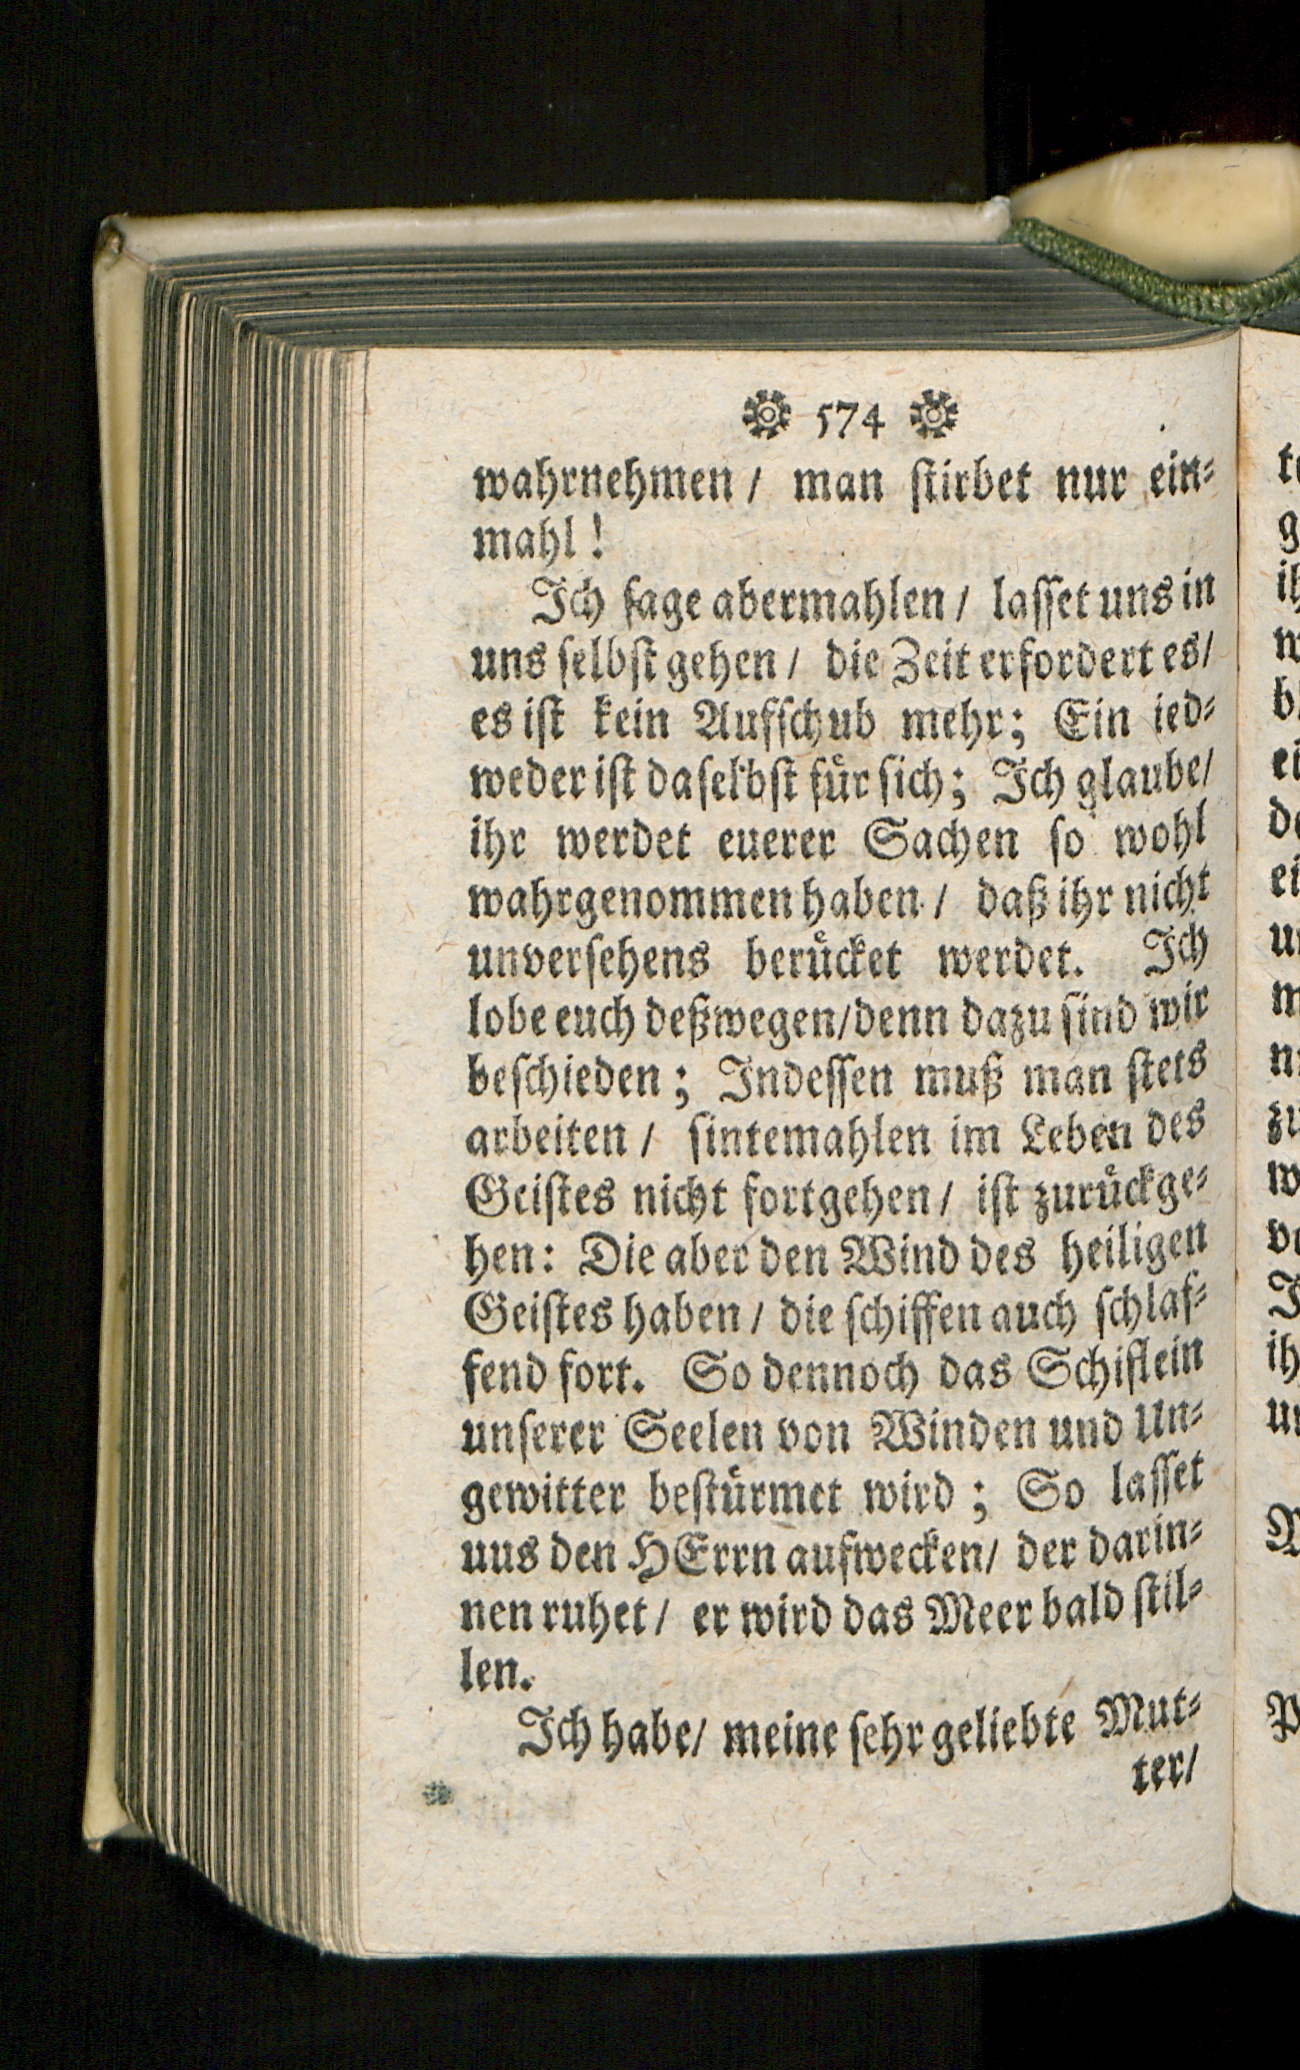 574
wahrnehmen / man stirbet nur ein⸗
mahl!
Ich sage abermahlen / lasset uns in
uns selbst gehen / die Zeit erfordert es/
es ist kein Aufschub mehr; Ein ied⸗
weder ist daselbst fuͤr sich; Ich glaube/
ihr werdet euerer Sachen so wohl
wahrgenommen haben / daß ihr nicht
unversehens beruͤcket werdet. Ich
lobe euch deßwegen/denn dazu sind wir
beschieden; Indessen muß man stets
arbeiten / sintemahlen im Leben des
Geistes nicht fortgehen / ist zuruͤckge⸗
hen: Die aber den Wind des heiligen
Geistes haben / die schiffen auch schlaf⸗
fend fort. So dennoch das Schiflein
unserer Seelen von Winden und Un⸗
gewitter bestuͤrmet wird; So lasset
uns den HErrn aufwecken/ der darin⸗
nen ruhet / er wird das Meer bald stil⸗
len.
Ich habe/ meine sehr geliebte Mut⸗
ter/